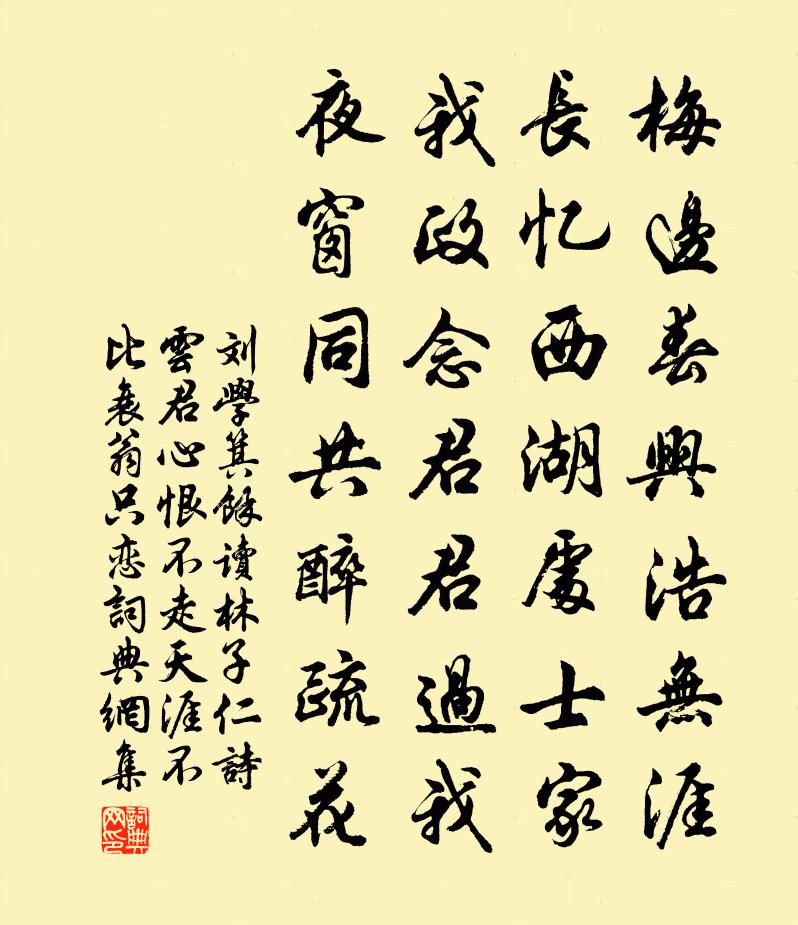 梅邊春興浩無涯
長忆西湖處士家
我政念君君過我
夜窗同共醉疏花
刘學箕餘读林子仁詩
雲君心恨不走天涯不
比衰翁只恋詞典網集
詞典网印